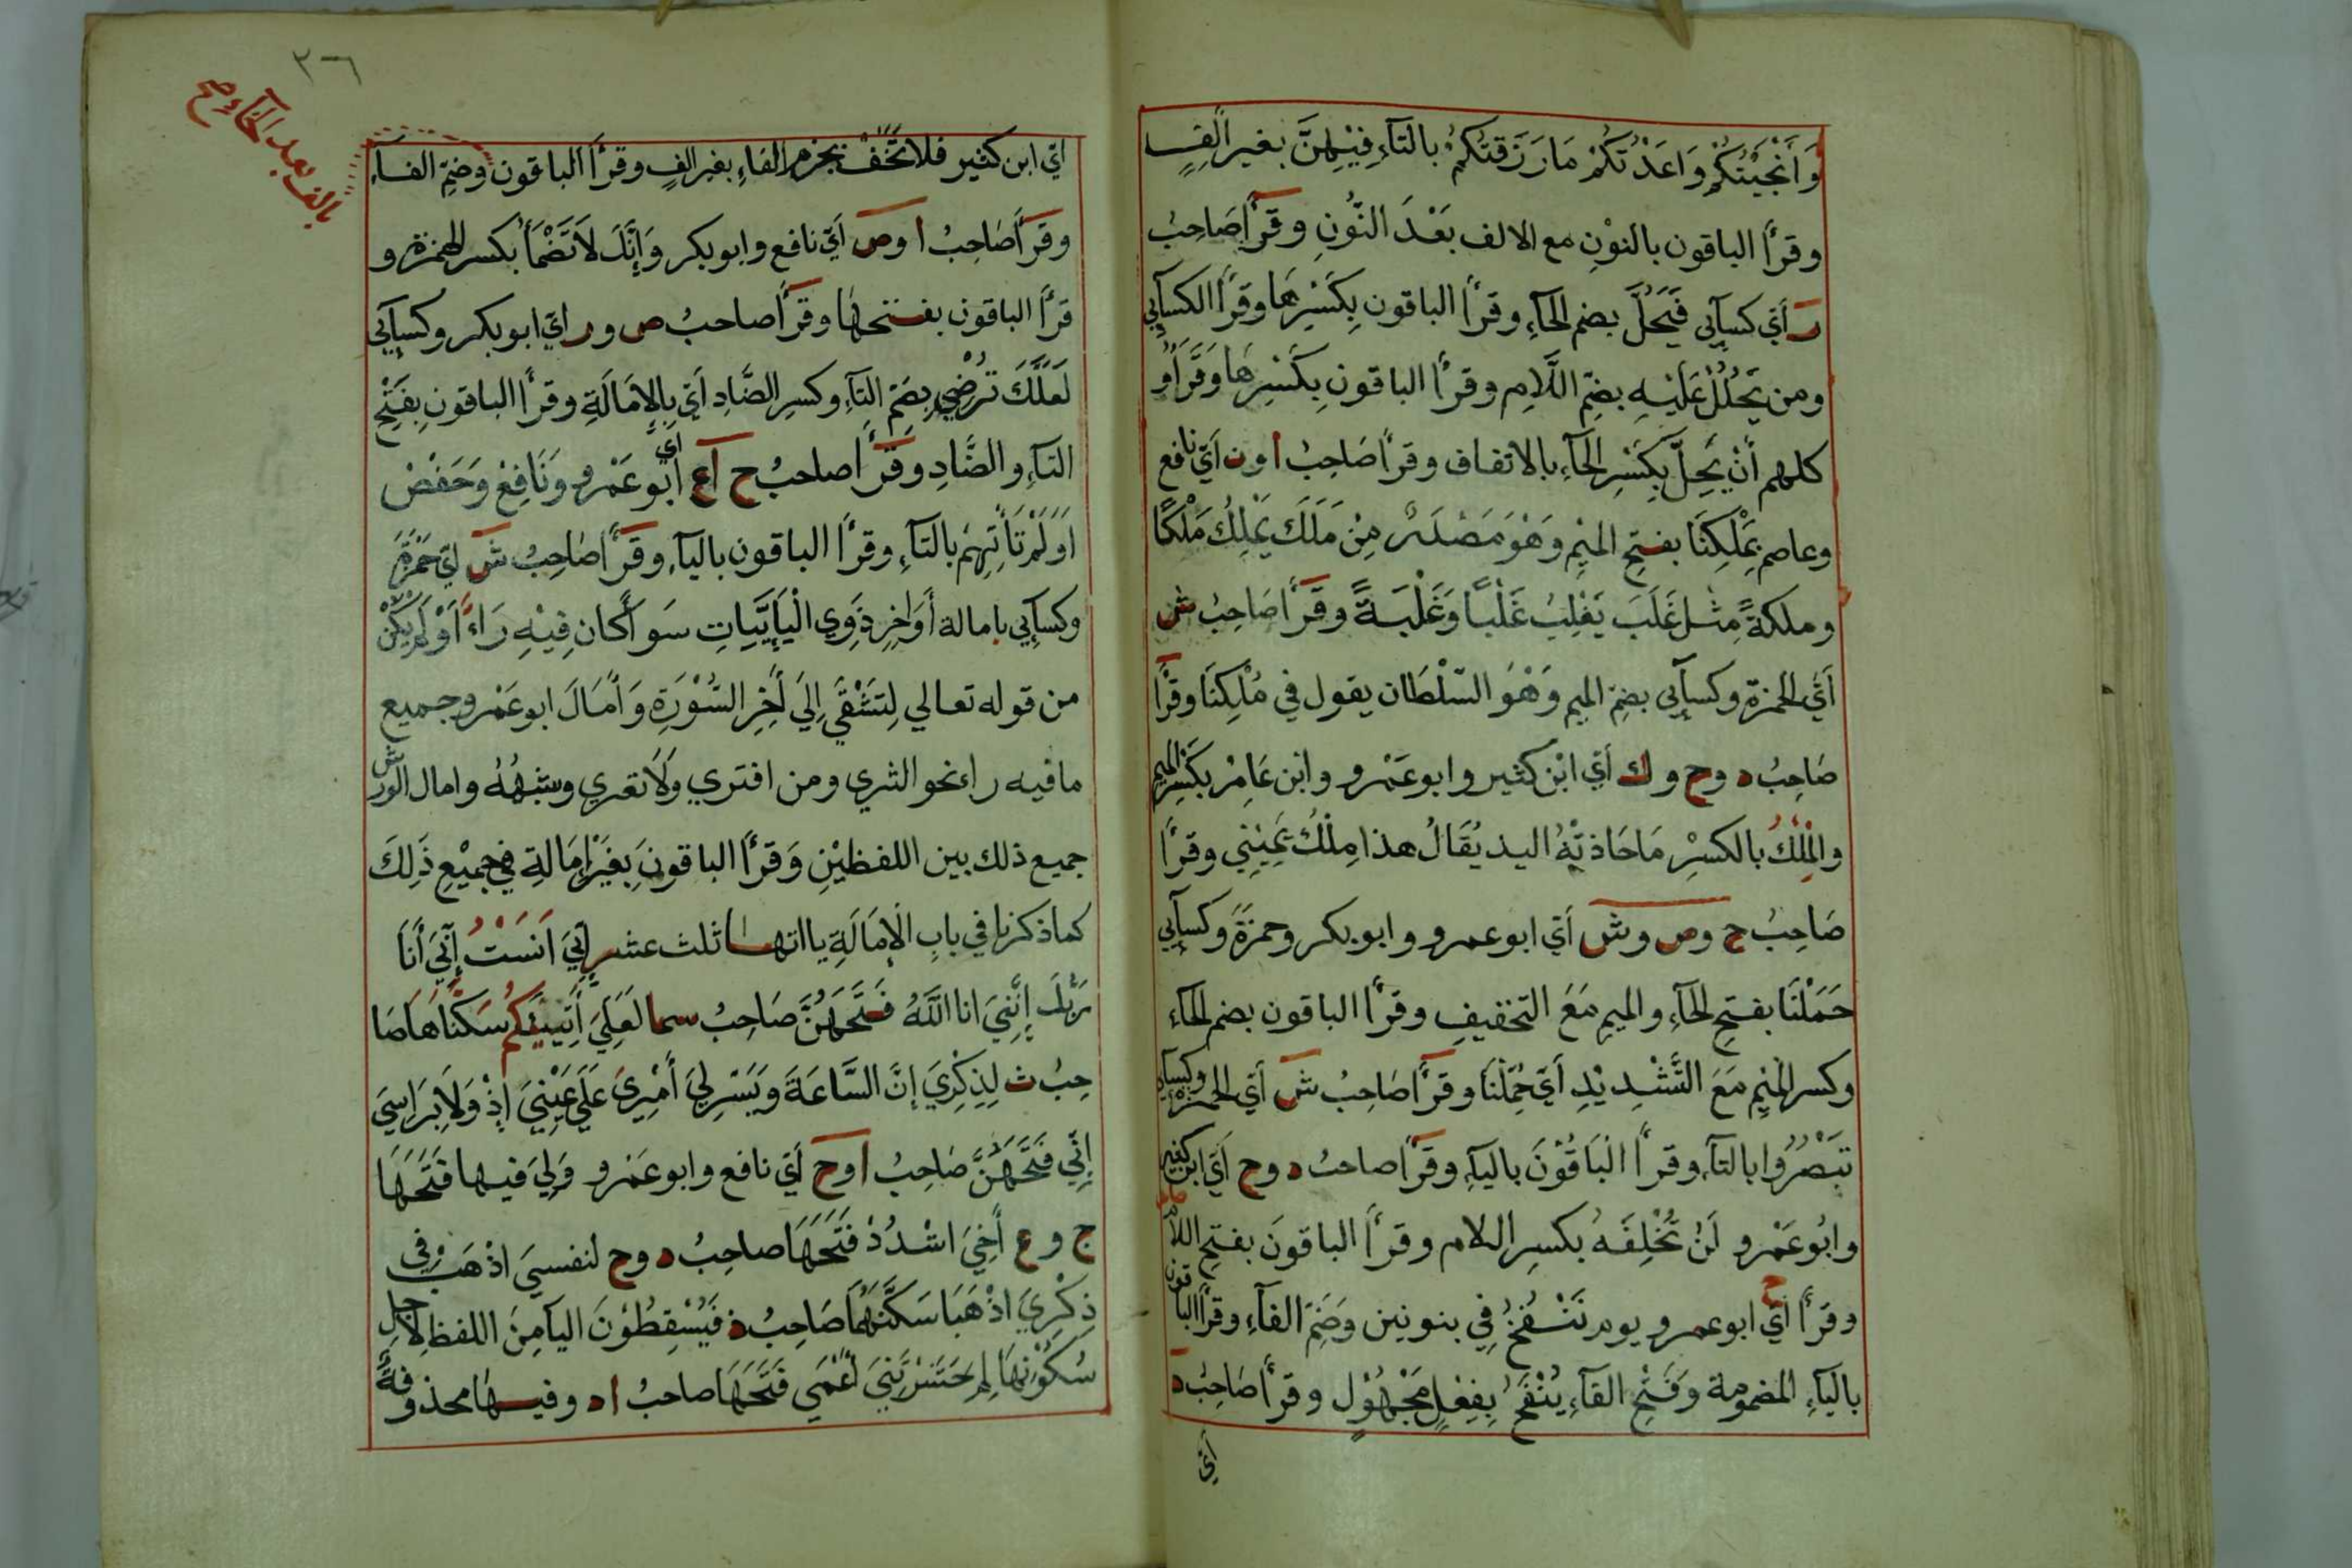 وَاَنْجَيْتُكُمْ وَاعَدْتُكُمْ مَا رَزَقتُكُمْ بالتآءِ فِيْهِنَّ بغير الفٍ
وقرأ الباقون بالنوْنِ مع الالف بَعْدَ النُّونِ وقرَأ صَاحِبُ
ر أَيّ كسآئي فَيَحُلَّ بضم الحآءِ وقرأ الباقون بِكَسْرِهَا وقرأ الكسآئي
ومن يَحْلُلْ عَلَيْهِ بضمِّ اللَّامِ وقرأ الباقونِ بِكَسْرِهَا وَقَرَأُو
كلهم أَنْ يَحِلَّ بِكَسْرِ الحآءِ بالاتفاف وقرأ صَاحِبُ ا ون أَيّ نافع
وعاصم بِمَلْكِنَا بفتحِ الميْمِ وَهْوَ مَصْدَرٌ مِنْ مَلَكَ يَمْلِكُ مَلْكًا
وملكةً مِثْل غَلَبَ يَغْلِبُ غَلْبًا وَغَلْبَةً وقَرَأ صَاحِبُ ش
أَيّ الحمزة وكسآئي بضمِّ الميم وَهْوَ السّلْطَان يقول في مُلْكِنَا وقرأ
صَاحِبُ د وح وك أَيّ ابْن كثير وابو عَمْرو وابْن عَامِرْ بكَسْرِ الميم
والمِلْكُ بالكسْرِ مَا حَاذتْهُ اليد يُقَالُ هذا مِلْكُ يَمِيْنِي وقرأ
صَاحِبُ ح وص وش أَيّ ابو عمرو وابو بكر وحمزةَ وكسآئي
حَمَلْنَا بفتح الحآءِ والميم مَعَ التخفيفِ وقرأ الباقون بضم الحآء
وكسر الميْمِ مَعَ التَّشْدِيْدِ أَيّ حُمِّلْنَا وقرأ صَاحِبُ ش أَيّ الحمزة وكسآئي
تَبْصُرُوا بالتآءِ وقرأ البَاقُوْنَ باليآءِ وقَرَأ صاحبُ د وح أَيّ ابن كثير
وابُو عَمْرو لَنْ تُخْلِفَهُ بكسرِ اللام وقرأ الباقونَ بفتحِ اللام
وقرأ ح أَيّ ابو عمرو يوم نَنْفُخُ فِي بنونين وَضَمِّ الفآءِ وقرأ الباقون
باليآءِ المضمومة وَفَتْحِ الفآءِ يُنْفَخُ بِفِعْلٍ مَجْهُوْلٍ وقرأ صَاحِبُ د
أيّ
٣٦
بالف بعد الخآء صح
ايّ ابن كثير فلا تَخَفْ بجزم الفاءِ بغير الفٍ وقرأ الباقون وضمِّ الفآءِ
وقرأ صَاحِبُ ا وص أَيّ نافع وابو بكر وَإِنَّكَ لَا تَظْمَأُ بكسر الهمزة و
قرأ الباقون بفتحها وقرأ صاحبُ ص ور ايّ ابو بكر وكسآئي
لَعَلَّكَ تُرْضِي بِضَمِّ التآءِ وكسرِ الضّادِ اَيّ بِالاِمَالَةِ وقرأ الباقونِ بفتحِ
التآءِ والضَّادِ وقَرَأ صاحبُ ح آع أي أَبُو عَمْرو وَنَافِعْ وَحَفْصْ
اَوَلَمْ تَأْتِهِمْ بالتآءِ وقرأ الباقون باليآءِ وقَرَأ صَاحِبُ ش ايّ حَمْزَةُ
وكسآئي بامالة أَوَاخِرِ ذَوِي الْيَآئيَّاتِ سَوَآ كَان فِيْهِ رَاءٌ أَوْ لَمْ يَكُنْ
من قوله تعالي لِتَشْقَي إِلَي أَخِرِ السُّوْرَةِ وَأَمَالَ ابو عَمْرو جميع
ما فيه راء نحو الثري ومن افتري ولَا تعري وشِبْهُهُ وامال الورش
جميع ذلك بين اللفظيْنِ وَقرأ الباقونَ بِغَيْرِ إِمَالَةٍ فِي جميْعِ ذَلِكَ
كما ذكرنا في بابِ الْإِمَالَةِ يااتها ثلث عشر إِنّيَ اَنَسْتُ إِنّيَ أَنَا
رَبُّكَ إِنَّنِيَ انا اللَّهُ فَتَحَهُنَّ صَاحِبُ سما لَعَلِيَ أَتِيْكُمْ سَكَّنَاهَا صَا
حِبُ ث لِذِكْرِيَ إِنَّ السَّاعَةَ وَيَسِّرْ لِيَ أَمْرِيَ عَلَي عَيْنِيَ إِذْ وَلَا بِرَاسِيَ
إِنِّي فَتَحَهُنَّ صَاحِبُ ا وح أَيّ نافع وابو عَمْرو وَلِيَ فيها فَتَحَهَا
ج وع أَخِيَ اشْدُدْ فَتَحَهَا صاحِبُ د وح لنفسيَ اذْهَبْ وفي
ذِكْرِيَ اذْهَبَا سَكَّنَهُمَا صَاحِبُ ذ فَيُسْقِطُوْنَ اليآ مِنَ اللفظ لِأَجْلِ
سُكُوْنِهَا لِمَ حَشَرْتَنِيَ أَعْمَي فَتَحَهَا صاحبُ ا د وفيها محذوفةٌ